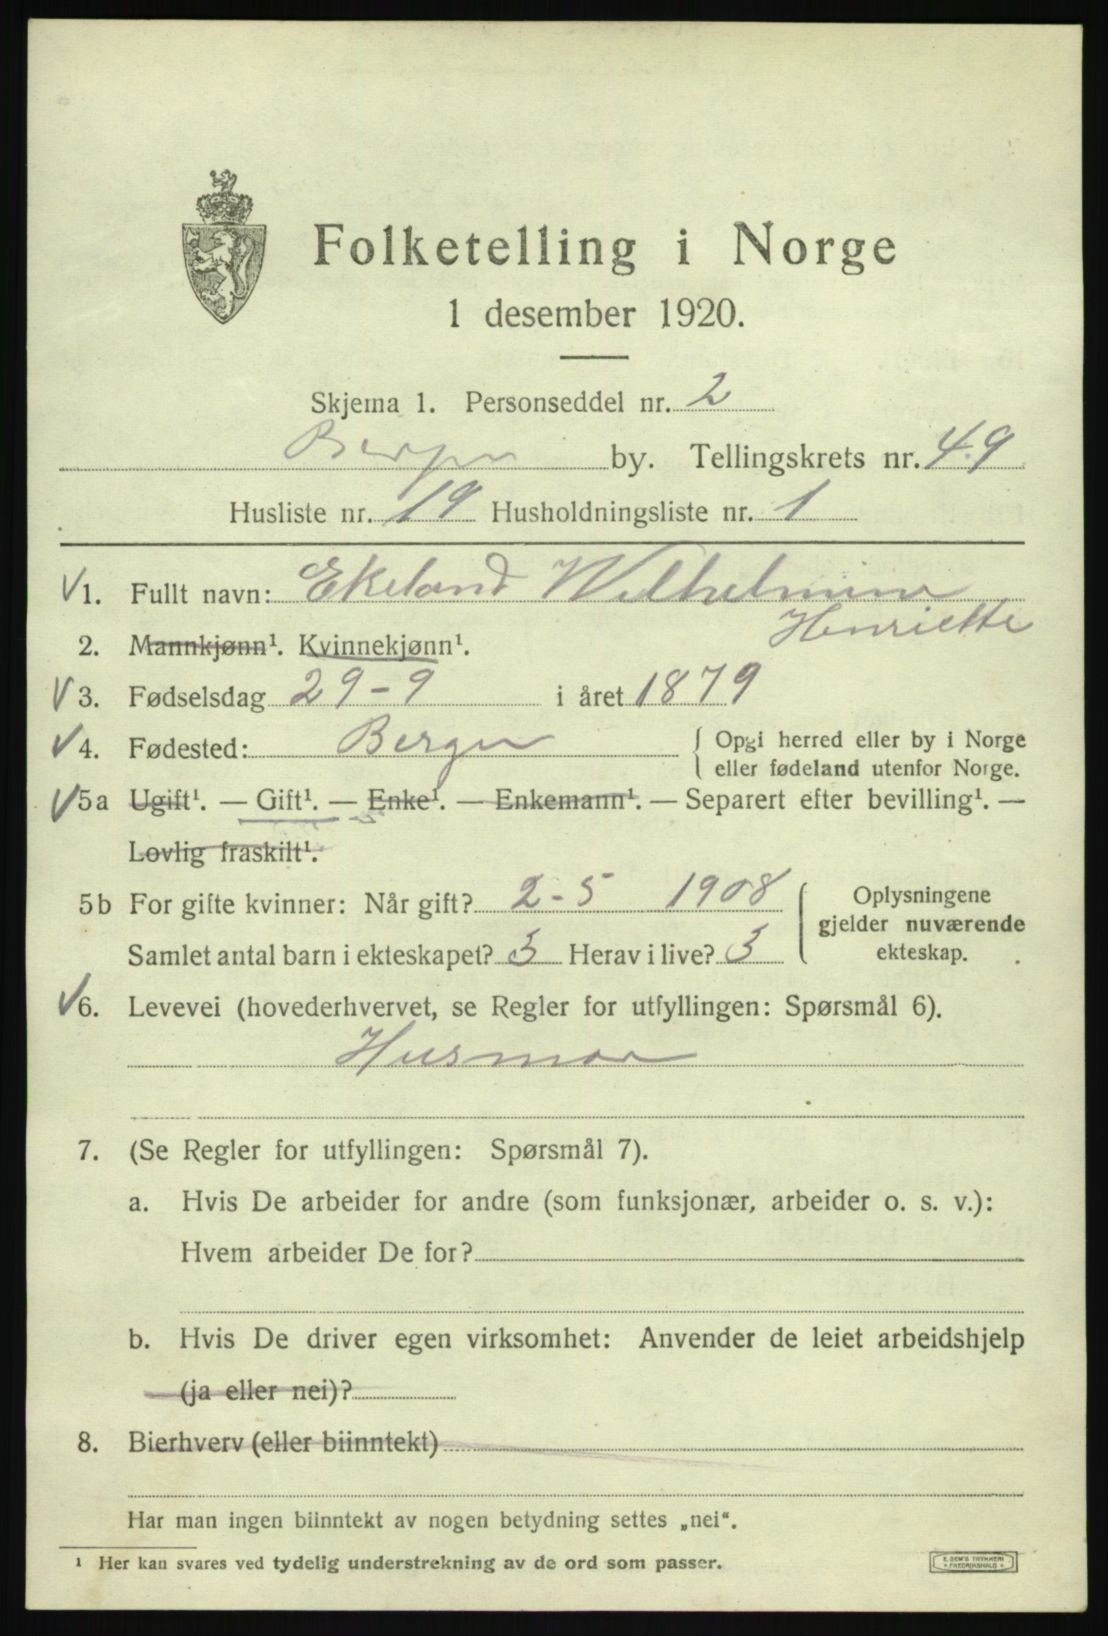 Folketelling i Norge
1 desember 1920.
Skjema 1. Personseddel nr. 2
Bergen by. Tellingskrets nr. 49
Husliste nr. 19 Husholdningsliste nr. 1
√1. Fullt navn: Ekeland Wilhelmine
Henriette
2. Mannkjønn¹. Kvinnekjønn¹.
√3. Fødselsdag 29-9 i året 1879
√4. Fødested: Bergen { Opgi herred eller by i Norge
eller fødeland utenfor Norge.
√5a Ugift¹. — Gift¹. — Enke¹. — Enkemann¹. — Separert efter bevilling¹. —
Lovlig fraskilt¹.
5b For gifte kvinner: Når gift? 2-5 1908 { Oplysningene
gjelder nuværende
Samlet antal barn i ekteskapet? 3 Herav i live? 3 ekteskap.
√6. Levevei (hovederhvervet, se Regler for utfyllingen: Spørsmål 6).
Husmor
7. (Se Regler for utfyllingen: Spørsmål 7).
a. Hvis De arbeider for andre (som funksjonær, arbeider o. s. v.):
Hvem arbeider De for?
b. Hvis De driver egen virksomhet: Anvender de leiet arbeidshjelp
(ja eller nei)?
8. Bierhverv (eller biinntekt)
Har man ingen biinntekt av nogen betydning settes „nei“.
¹ Her kan svares ved tydelig understrekning av de ord som passer.
E. SEM'S TRYKKERI
FREDRIKSHALD